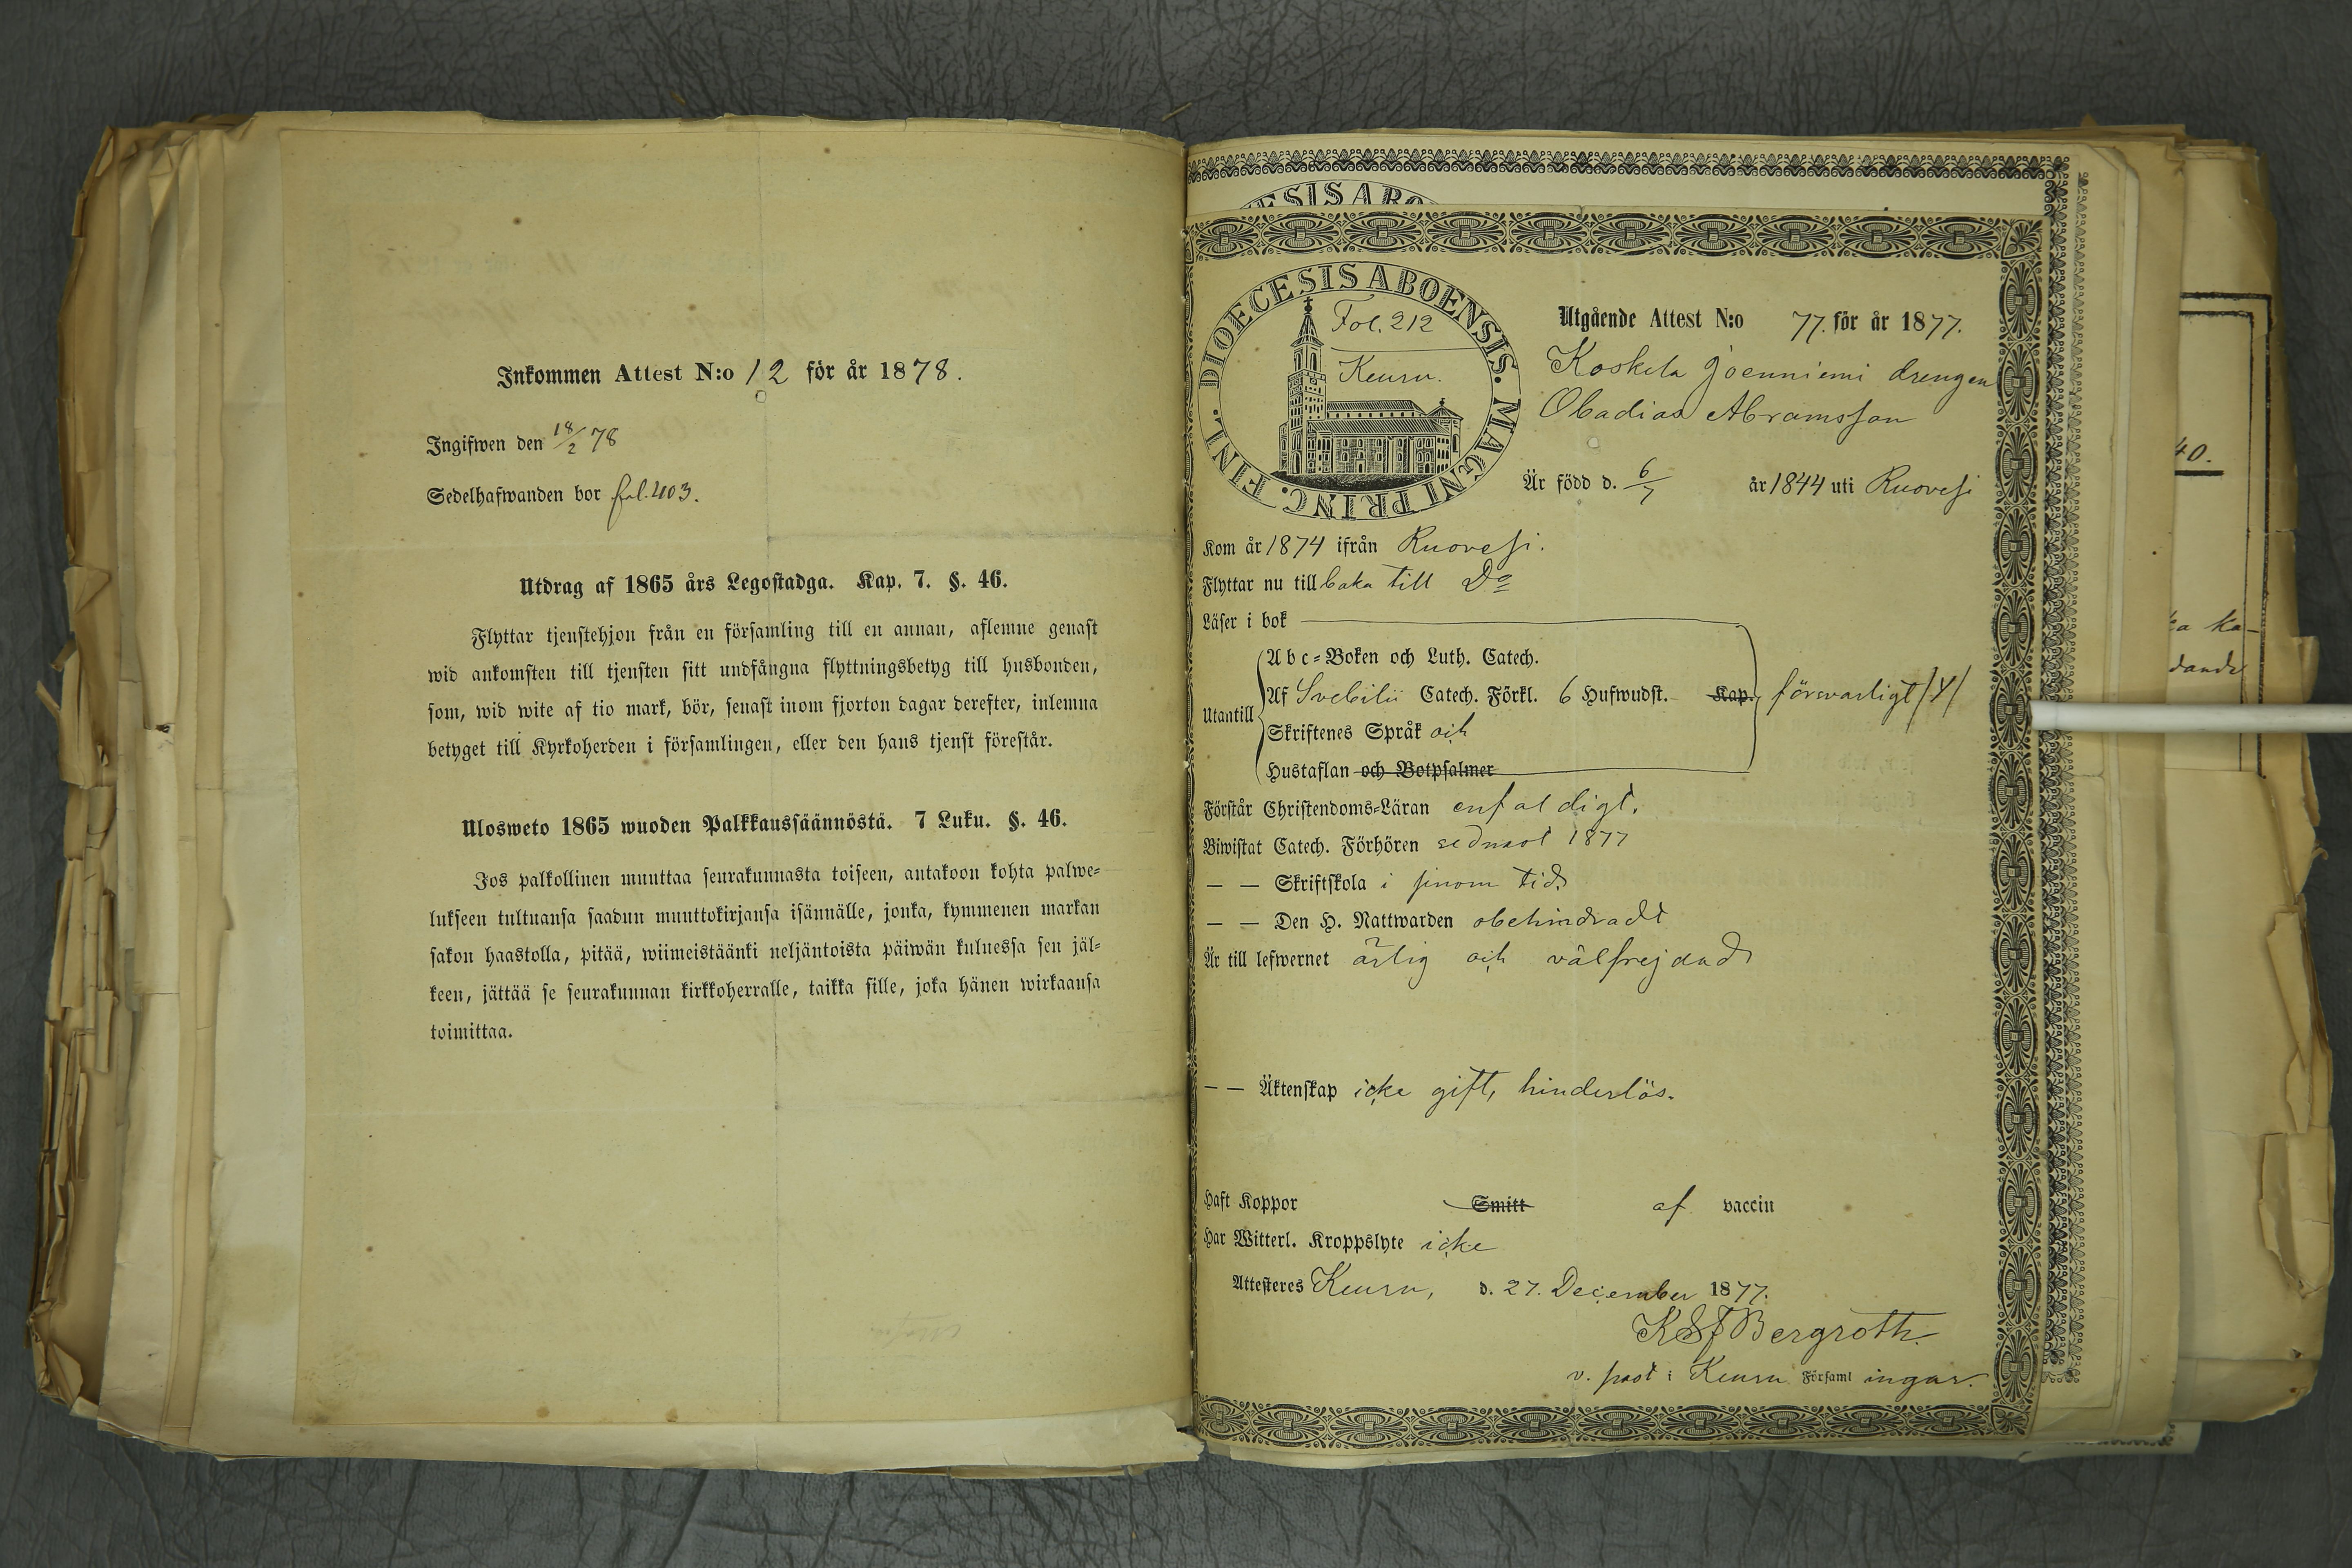 Inkommen Attest N:o 12 för år 1878.
Ingifwen den 18/2 78
Sedelhafwanden bor fol. 403.
Utdrag af 1865 års Legostadga. Kap. 7. §. 46.
Flyttar tjenstehjon från en församling till en annan, aflemne genast
wid ankomsten till tjensten sitt undfångna flyttningsbetyg till husbonden,
som, wid wite af tio mark, bör, senast inom fjorton dagar derefter, inlemna
betyget till Kyrkoherden i församlingen, eller den hans tjenst förestår.
Ulosweto 1865 wuoden Palkkaussäännöstä. 7 Luku. §. 46.
Jos palkollinen muuttaa seurakunnasta toiseen, antakoon kohta palwe-
lukseen tultuansa saadun muuttokirjansa isännälle, jonka, kymmenen markan
sakon haastolla, pitää, wiimeistäänki neljäntoista päiwän kuluessa sen jäl-
keen, jättää se seurakunnan kirkkoherralle, taikka sille, joka hänen wirkaansa
toimittaa.
DIOECESIS ABOENSIS. MAGNI PRINC. FINL.
Fol. 212
Keuru.
Utgående Attest N:o 77. för år 1877.
Koskela Joenniemi drengen
Obadias Abramsson
Är född d. 6/7 år 1844 uti Ruovesi
Kom år 1874 ifrån Ruovesi.
Flyttar nu till baka till Do
Läser i bok
Utantill
Abc-Boken och Luth. Catech.
Af Svebilii Catech. Förkl. 6 Hufwudst. Kap.
Skriftenes Språk och
Hustaflan och Botpsalmer
försvarligt /Y/
Förstår Christendoms-Läran enfaldigt.
Biwistat Catech. Förhören sednast 1877
— — Skriftskola i sinom tid
— — Den H. Nattwarden obehindradt
Är till lefwernet ärlig och välfrejdad
— — Äktenskap icke gift, hinderlös.
Haft Koppor Smitt af vaccin
Har Witterl. Kroppslyte icke
Attesteres Keuru, d. 27. December 1877.
K E F Bergroth
v. past i Keuru Församl ingar.
40.
ka ka-
dande